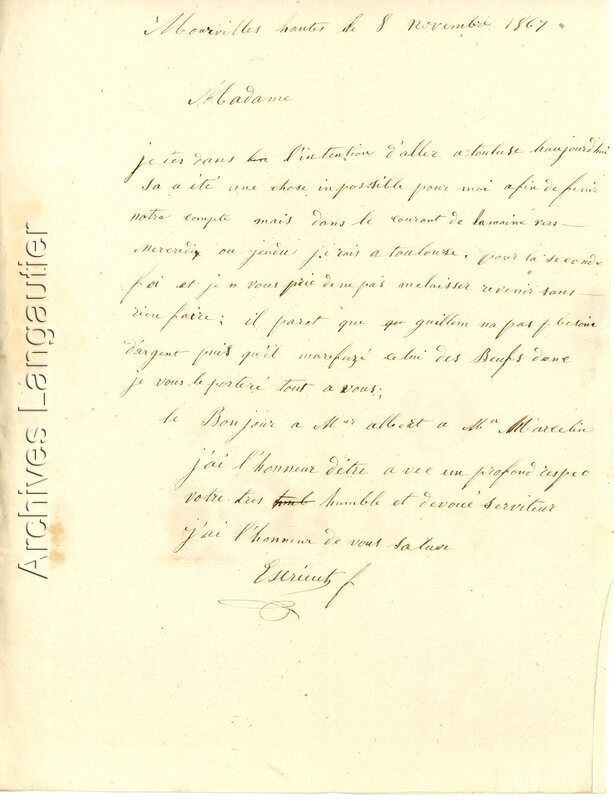 Mourvilles hautes le 8 novembre 1867
Madame
je tes dans la l'intention d'aller a touluse haujourd'hui
sa a été une chose inpossible pour moi afin de finir
notre compte mais dans le courant de lamaine vers
Mercredix ou jeudu j'irais a toulouze, pour la seconde
foi et je n vous prie de ne pas melaisser revenir sans
rien faire; il paret que guillem na pas besoin
d'argent puis qu'il marefuzé celui des Beufs donc
je vous le porteré tout a vous;
le Bonjour a Mur albert a Marcelin
j'ai l'honneur d'être avec un profond respec
votre tres humble et devoué serviteur
j'ai l'honneur de vous saluer
Archives Langautier